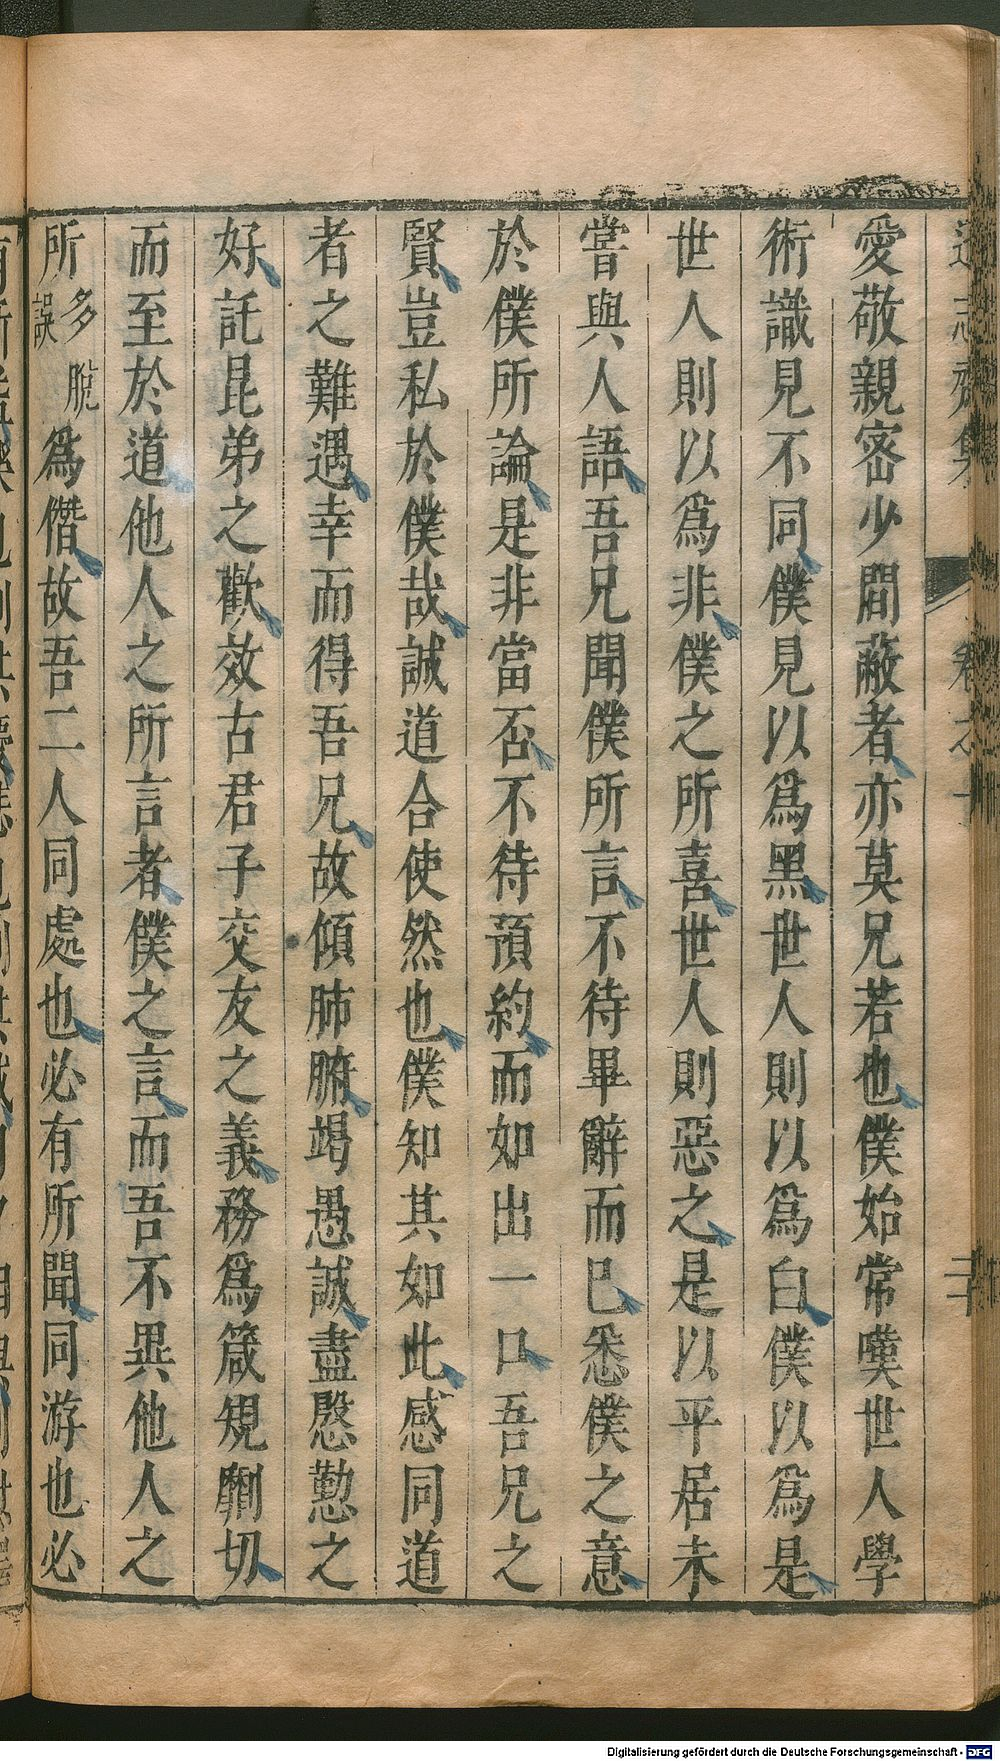 愛敬親密少間蔽者亦莫兄若也僕始常嘆世人學
術識見不同僕見以爲黑世人則以爲白僕以爲是
世人則以爲非僕之所喜世人則惡之是以平居未
嘗與人語吾兄聞僕所言不待畢辭而已悉僕之意
於僕所論是非當否不待預約而如出一口吾兄之
賢豈私於僕哉誠道合使然也僕知其如此感同道
者之難遇幸而得吾兄故傾肺腑竭愚誠盡慇懃之
好託昆弟之歡效古君子交友之義務爲箴規劘切
而至於道他人之所言者僕之言而吾不異他人之
所多脫誤爲僭故吾二人同處也必有所聞同游也必
Digitalisierung gefördert durch die Deutsche Forschungsgemeinschaft - DFG